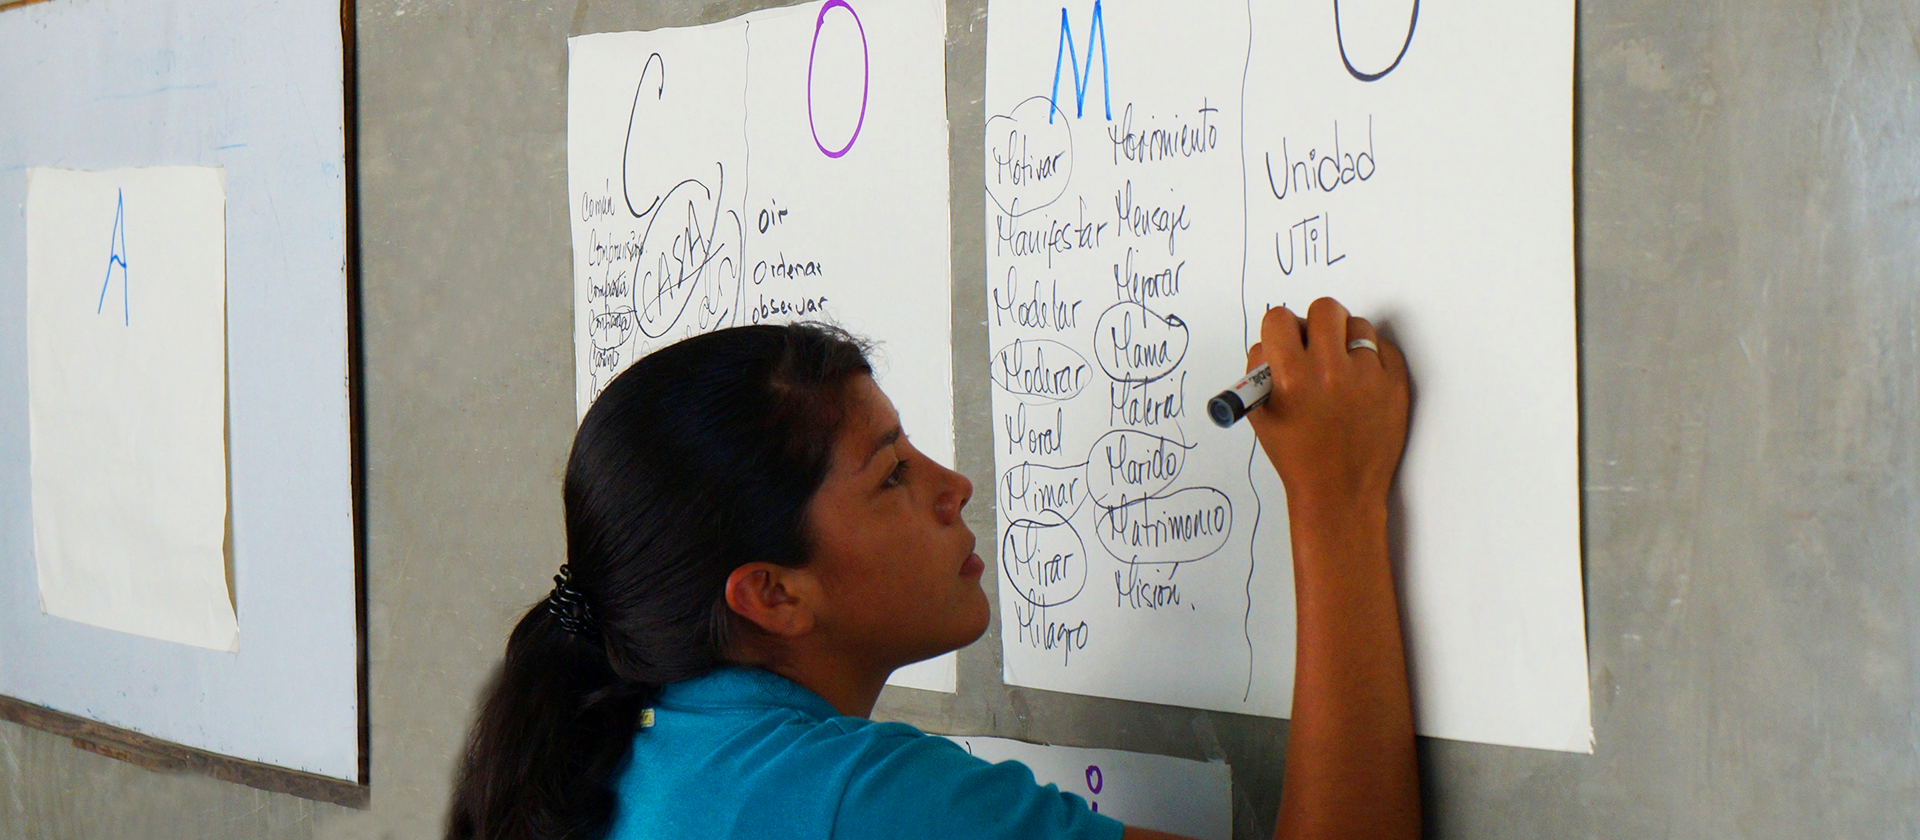 A
C
Común
Comprensión
Compartir
Confianza
Cariño
CASA
O
oir
Ordenar
observar
M
Motivar
Manifestar
Modelar
Moderar
Moral
Mimar
Mirar
Milagro
Movimiento
Mensaje
Mejorar
Mama
Material
Marido
Matrimonio
Misión.
U
Unidad
UTiL
i